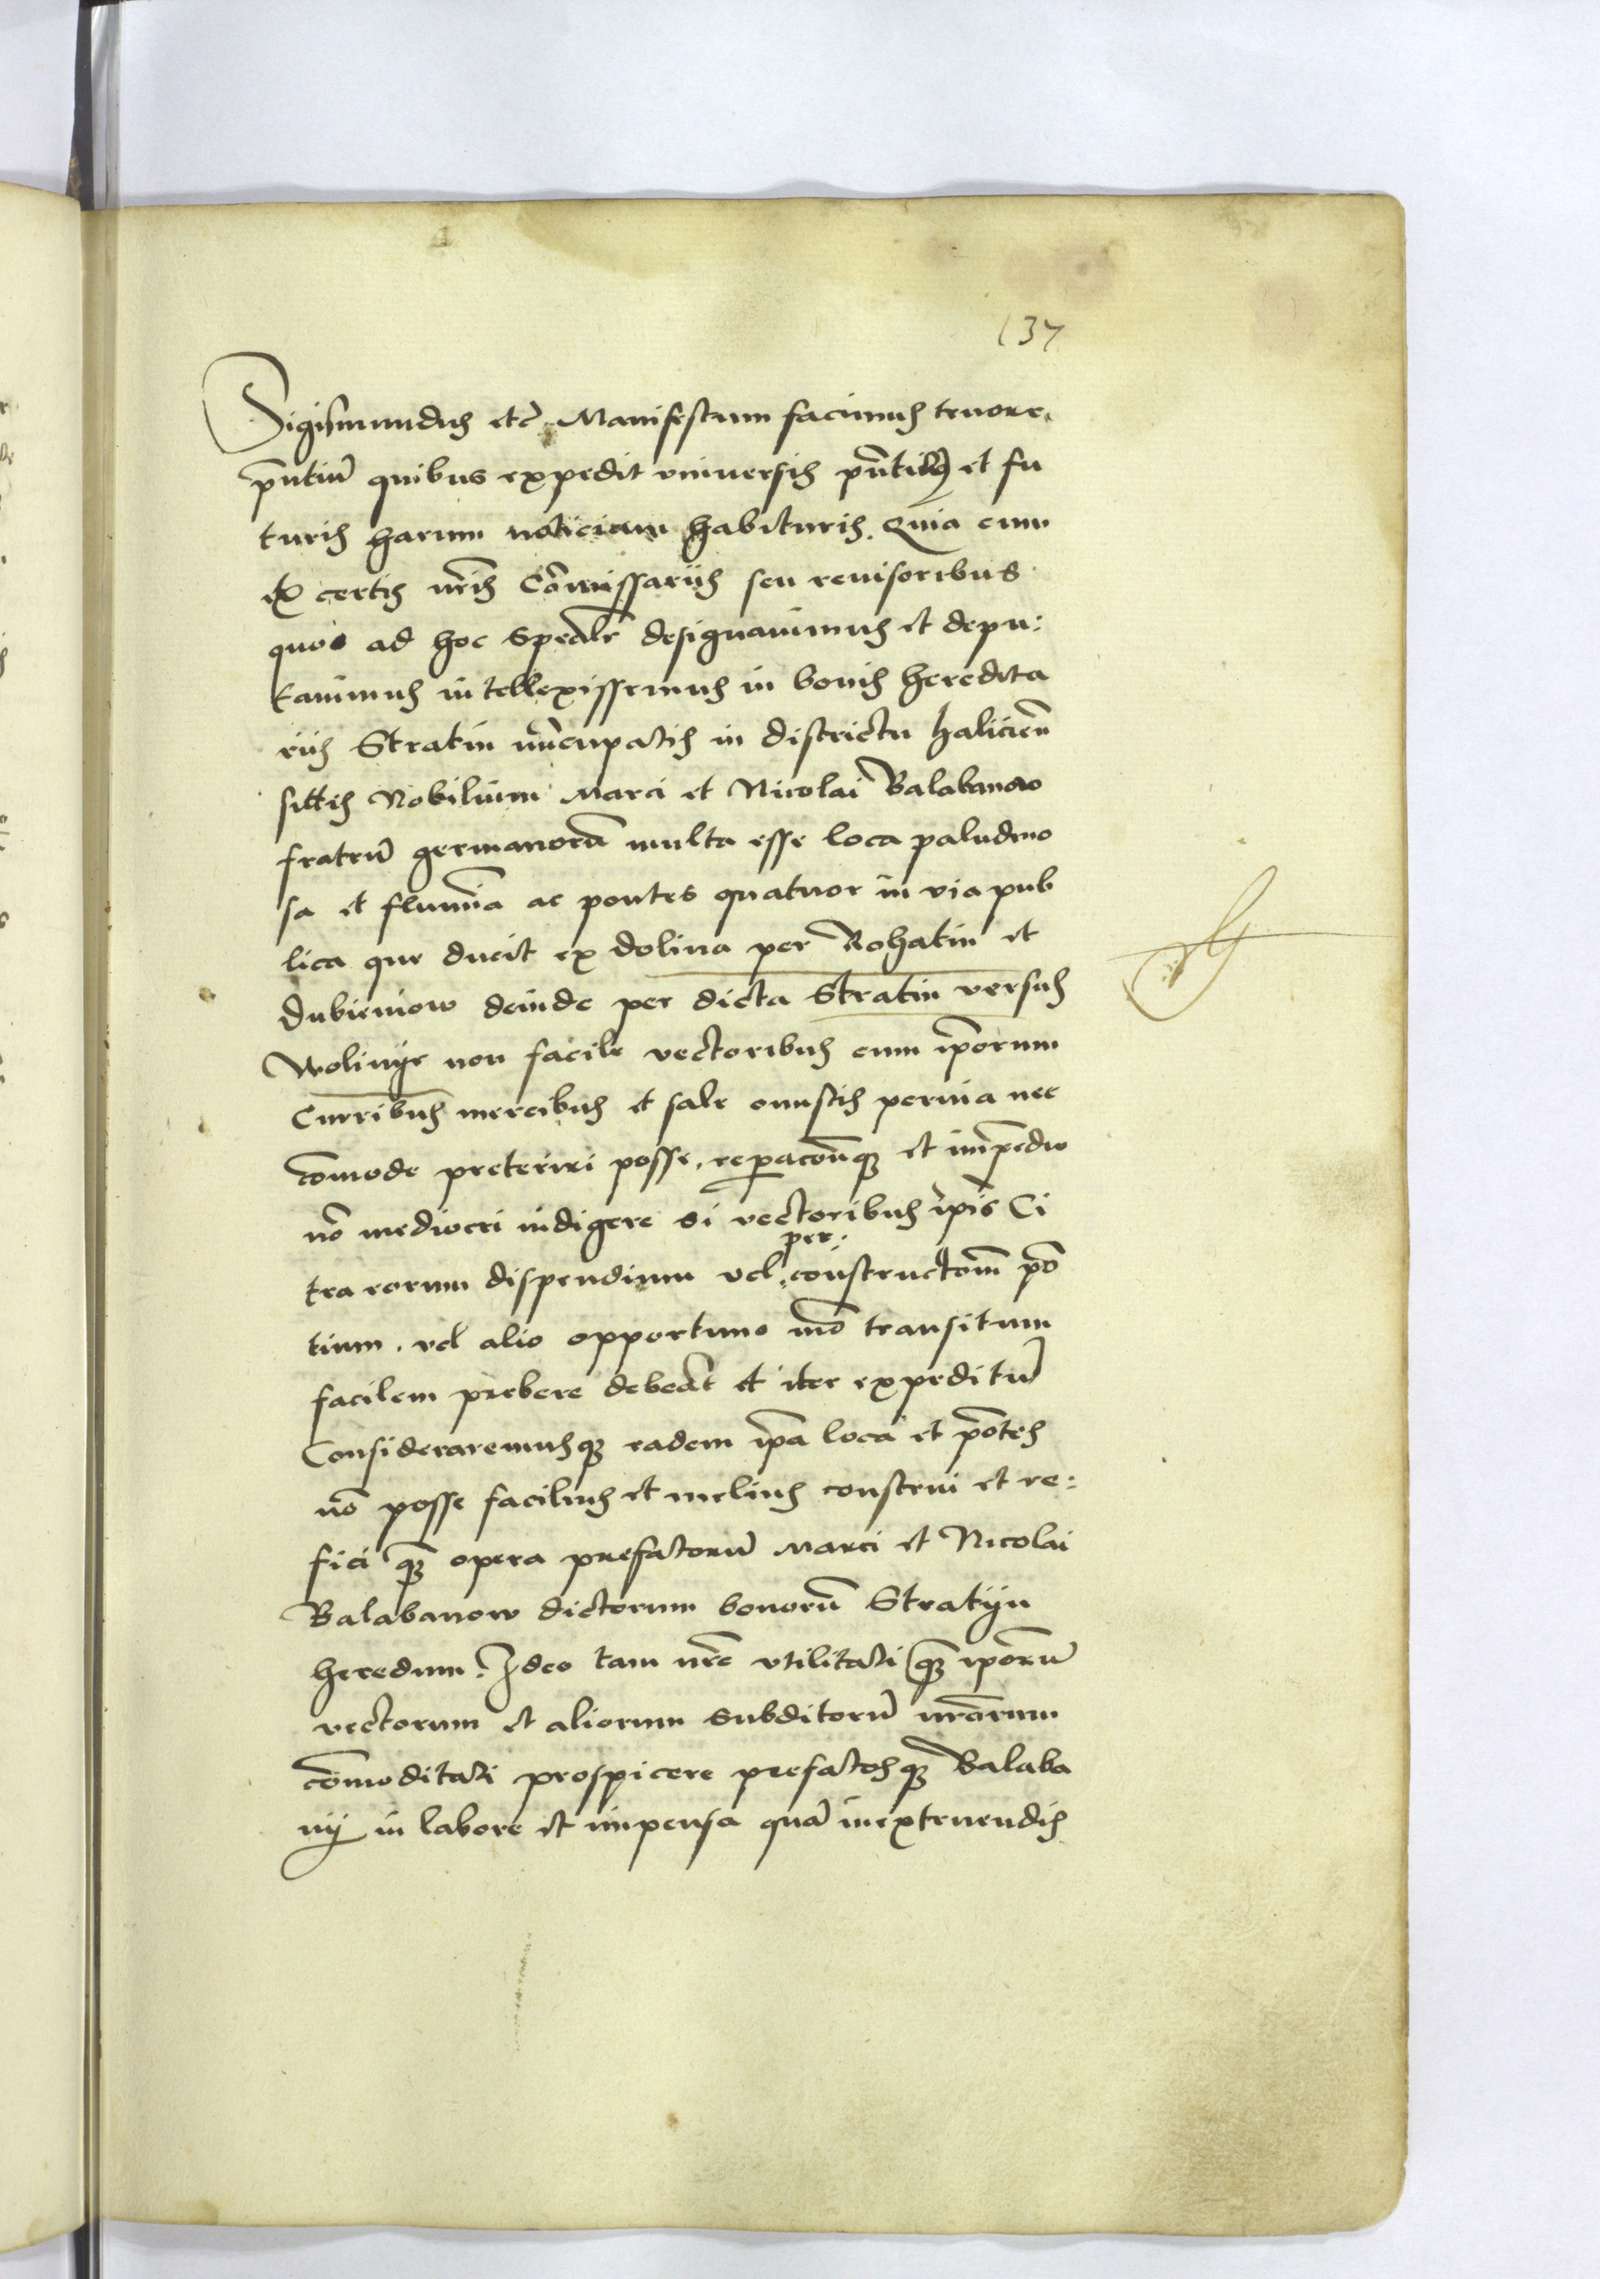 137
Sigismundus etc̃. Manifestum facimus tenore.
pñtiũ quibus expedit vniuersis pñtibꝫ et fu
turis harum noticiam habituris. Quia cum
ex certis nr̃is Cõmissariis seu reuisoribus
quos ad hoc spealr̃ designauimus et depu:
tauimus intellexissemus in bonis heredita
riis Stratin nũcupatis in districtu haliciẽn
sittis Nobilium Marci et Nicolai Balabanow
fratrũ germanorũ multa esse loca paludino
sa et flumĩa ac pontes quatuor in via pub
lica que ducit ex dolina per Rohatin et
Dubieniow deinde per dicta Stratin versus
Wolinye non facile vectoribus cum ip̃orum
Curribus mercibus et sale onustis peruia nec
cõmode preteriri posse, reparacõnqꝫ et imp̃endio
nõ mediocri indigere si vectoribus ip̃is Ci
tra eorum dispendium vel per: constructiom̃ põ
tium. vel alio opportuno mõ transitum
facilem prebere debeãt et iter expeditũ
Consideraremusqꝫ eadem ip̃a loca et põtes
nõ posse facilius et melius construi et re:
fici qꝫ̃ opera prefatorũ Marci et Nicolai
Balabanow dictorum bonorũ Stratyn
heredum. Ideo tam nr̃e vtilitati qꝫ̃ ip̃orũ
vectorum et aliorum subditorũ nr̃orum
cõmoditati prospicere prefatosqꝫ Balaba
nij in labore et impensa quã in extruendis